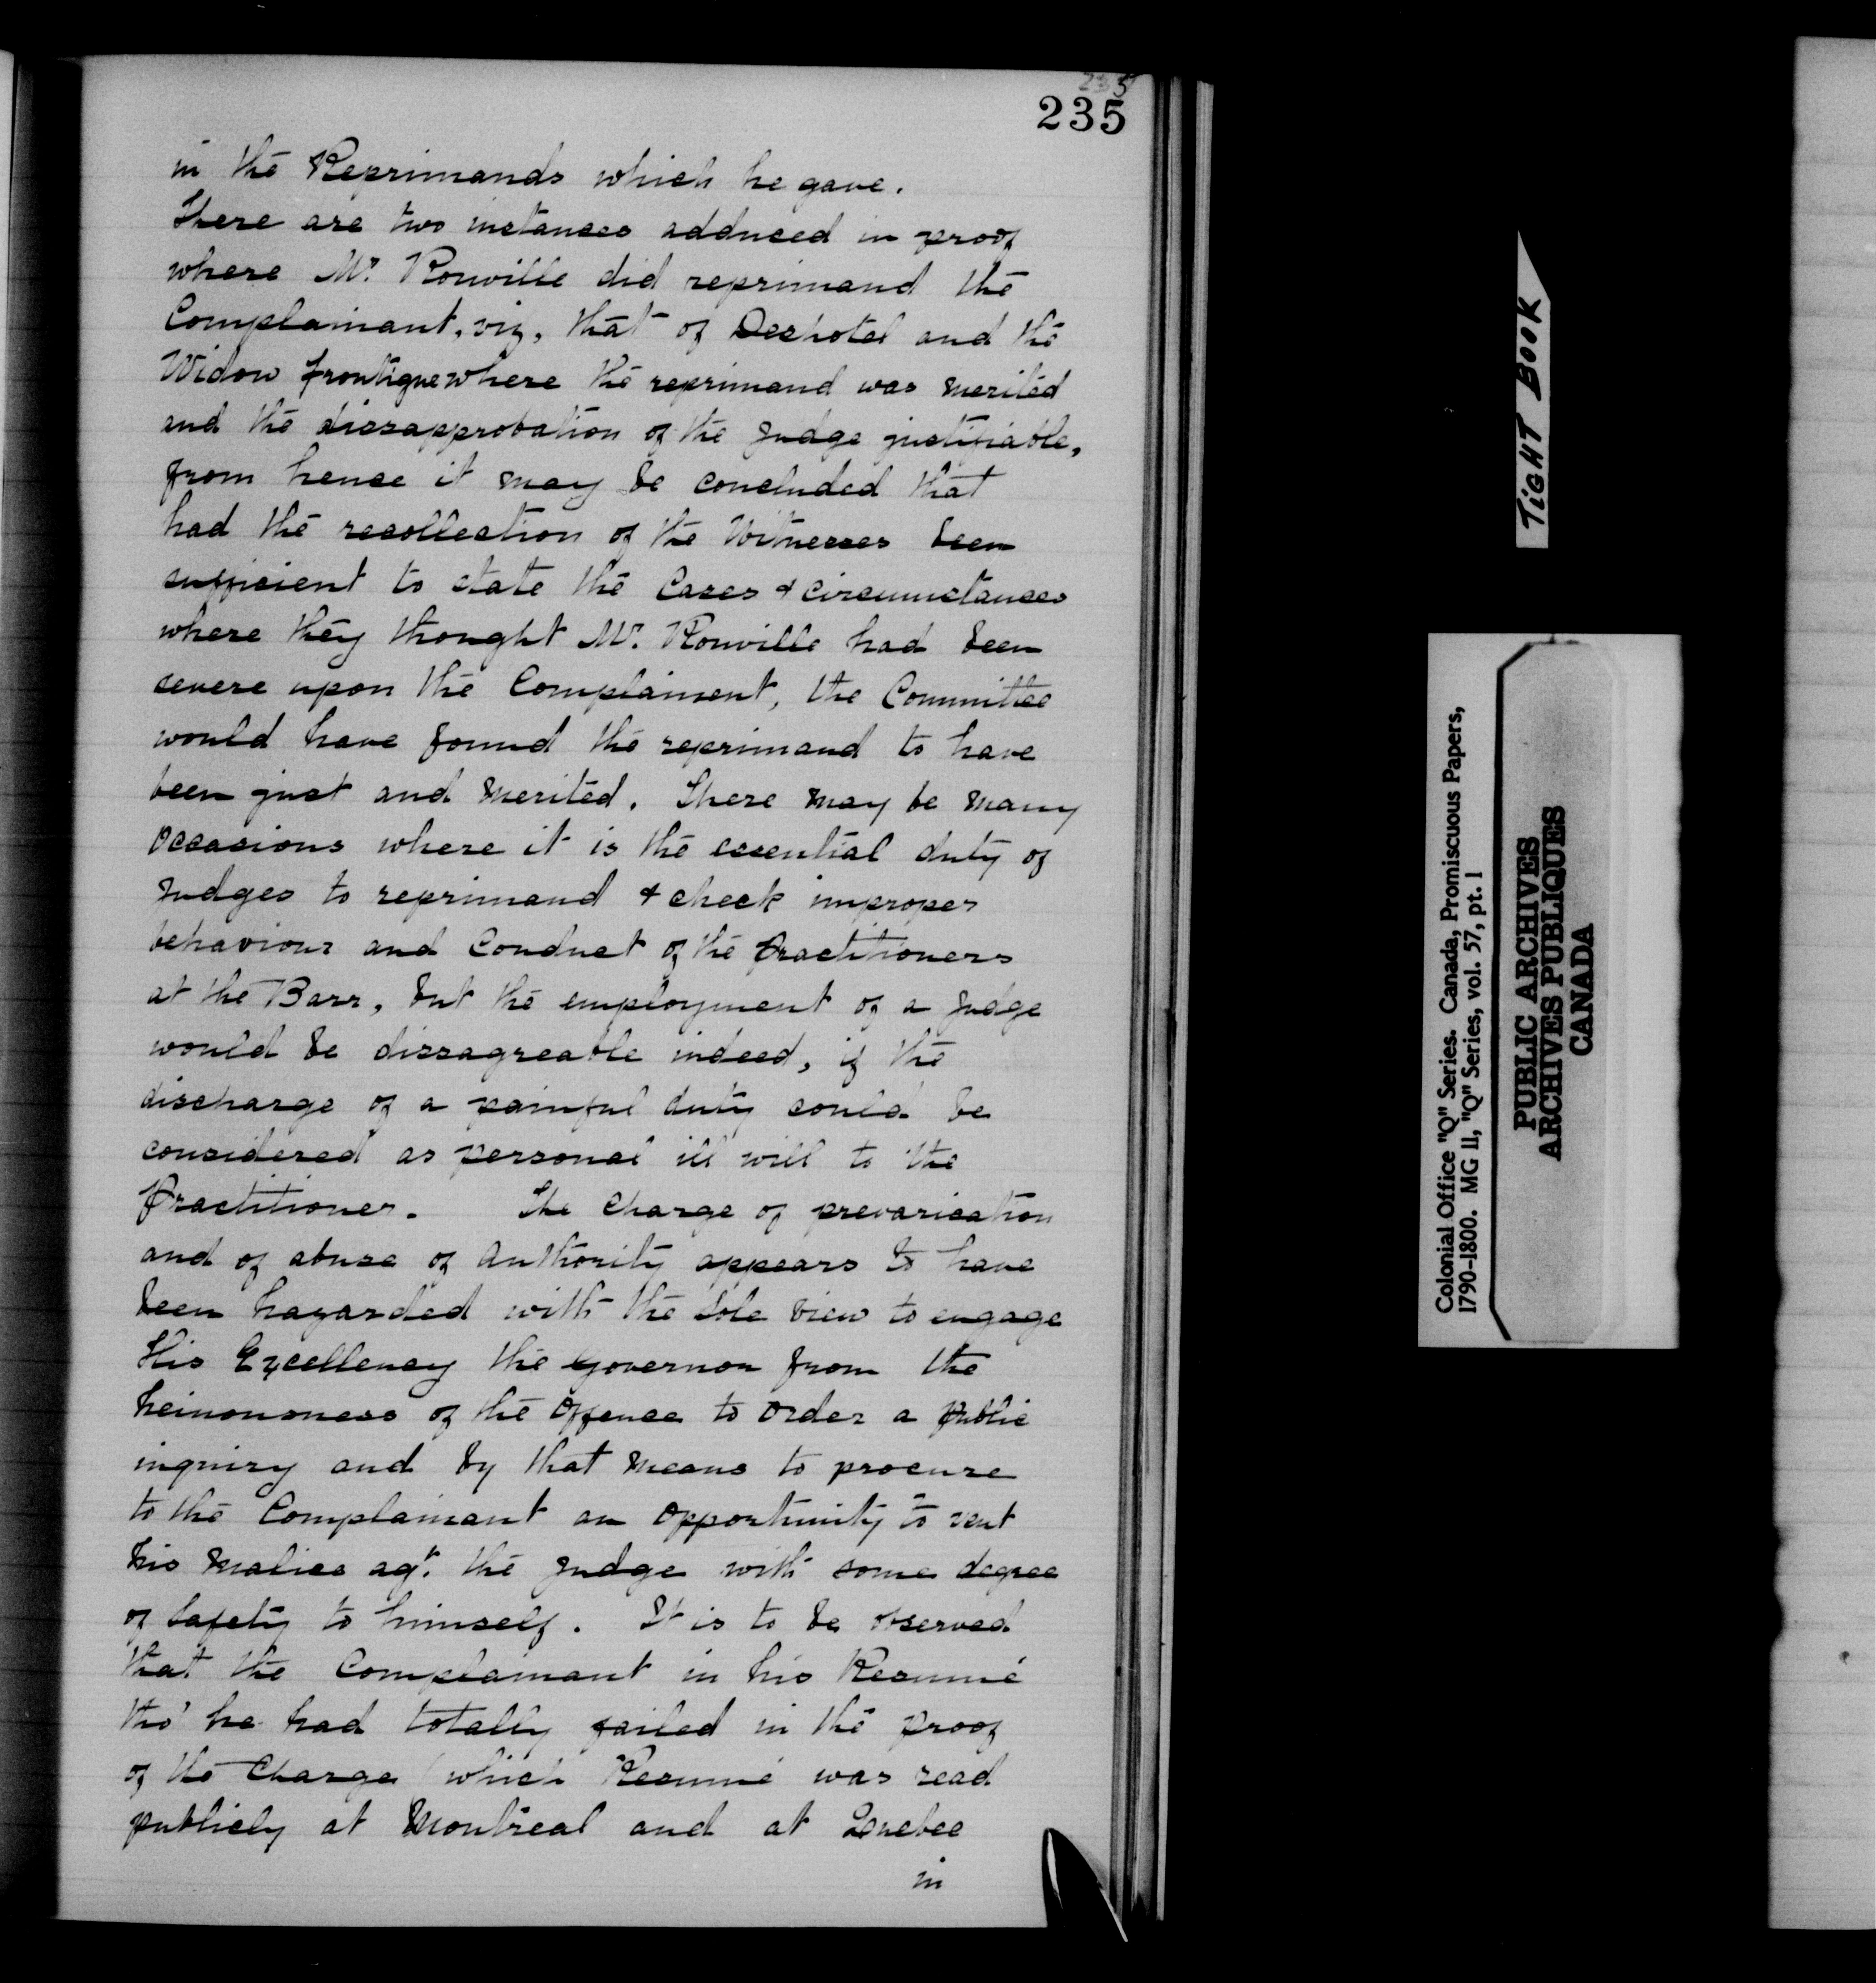 235
235
in the Reprimands which he gave.
There are two instances adduced in proof
where Mr. Rouville did reprimand the
Complainant, viz, that of Deshotel and the
Widow frontigne where the reprimand was merited
and the dissapprobation of the Judge justifiable,
from hence it may be concluded that
had the recollection of the Witnesses been
sufficient to state the Cases & circumstances
where they thought Mr. Rouville had been
severe upon the Complainent, the Committee
would have found the reprimand to have
been just and merited. There may be many
Occasions where it is the essential duty of
Judges to reprimand & check improper
behaviour and Conduct of the practitioners
at the Barr, but the employment of a Judge
would be dissagreable indeed, if the
discharge of a painful duty could be
considered as personal ill will to the
practitioner. The Charge of prevarication
and of abuse of Authority appears to have
been hazarded with the sole view to engage
His Excellency the Governor from the
heinousness of the Offence to Order a public
inquiry and by that means to procure
to the Complainant an Opportunity to vent
his malice agt. the Judge with some degree
of safety to himself. It is to be observed
that the Complainant in his Resumé
tho' he had totally failed in the proof
of the Charge (which Resumé was read
publicly at Montreal and at Quebec
in
TIGHT BOOK
Colonial Office "Q" Series. Canada, Promiscuous Papers,
1790-1800. MG 11, "Q" Series, vol. 57, pt. 1
PUBLIC ARCHIVES
ARCHIVES PUBLIQUES
CANADA